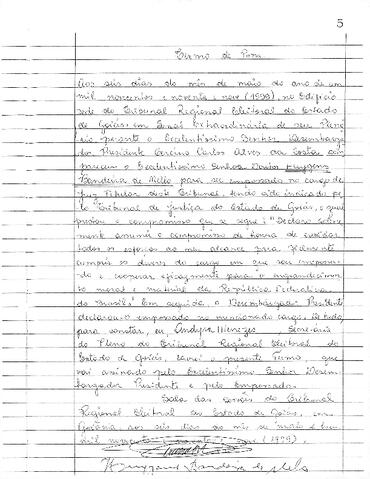 5
Termo de Posse
Aos seis dias do mês de maio do ano de um
mil novecentos e noventa e nove (1999), no Edifício
sede do Tribunal Regional Eleitoral do Estado
de Goiás, em Sessão Extraordinária de seu Plená-
rio, perante o Excelentíssimo Senhor Desembarga-
dor Presidente Arcino Carlos Alves da Costa com-
pareceu o Excelentíssimo Senhor Doutor
Bandeira de Mello para ser empossado no cargo de
Juiz Titular deste Tribunal, tendo sido indicado pe-
lo Tribunal de Justiça do Estado de Goiás, o qual
prestou o compromisso que se segue: "Declaro solene-
mente assumir o compromisso de honra de envidar
todos os esforços ao meu alcance para fielmente
cumprir os deveres do cargo em que sou empossa-
do e cooperar eficazmente para o engrandecimen-
to moral e material da República Federativa
do Brasil." Em seguida, o Desembargador Presidente
declarou-o empossado no mencionado cargo. Do todo,
para constar, eu, Menezes, Secretária
do Pleno do Tribunal Regional Eleitoral do
Estado de Goiás, lavrei o presente Termo, que
vai assinado pelo Excelentíssimo Senhor Desem-
bargador Presidente e pelo Empossado.
Sala das Sessões do Tribunal
Regional Eleitoral do Estado de Goiás, em
Goiânia, aos seis dias do mês de maio de hum
mil novecentos e noventa e nove (1999).
Bandeira de Mello